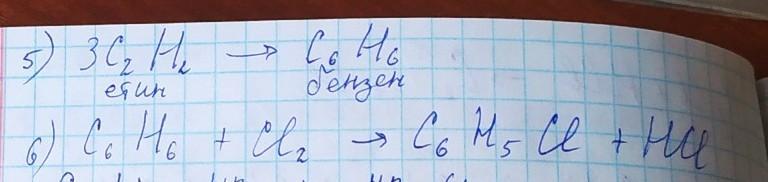 5) 3C₂H₂ → C₆H₆
етин бензен
6) C₆H₆ + Cl₂ → C₆H₅Cl + HCl